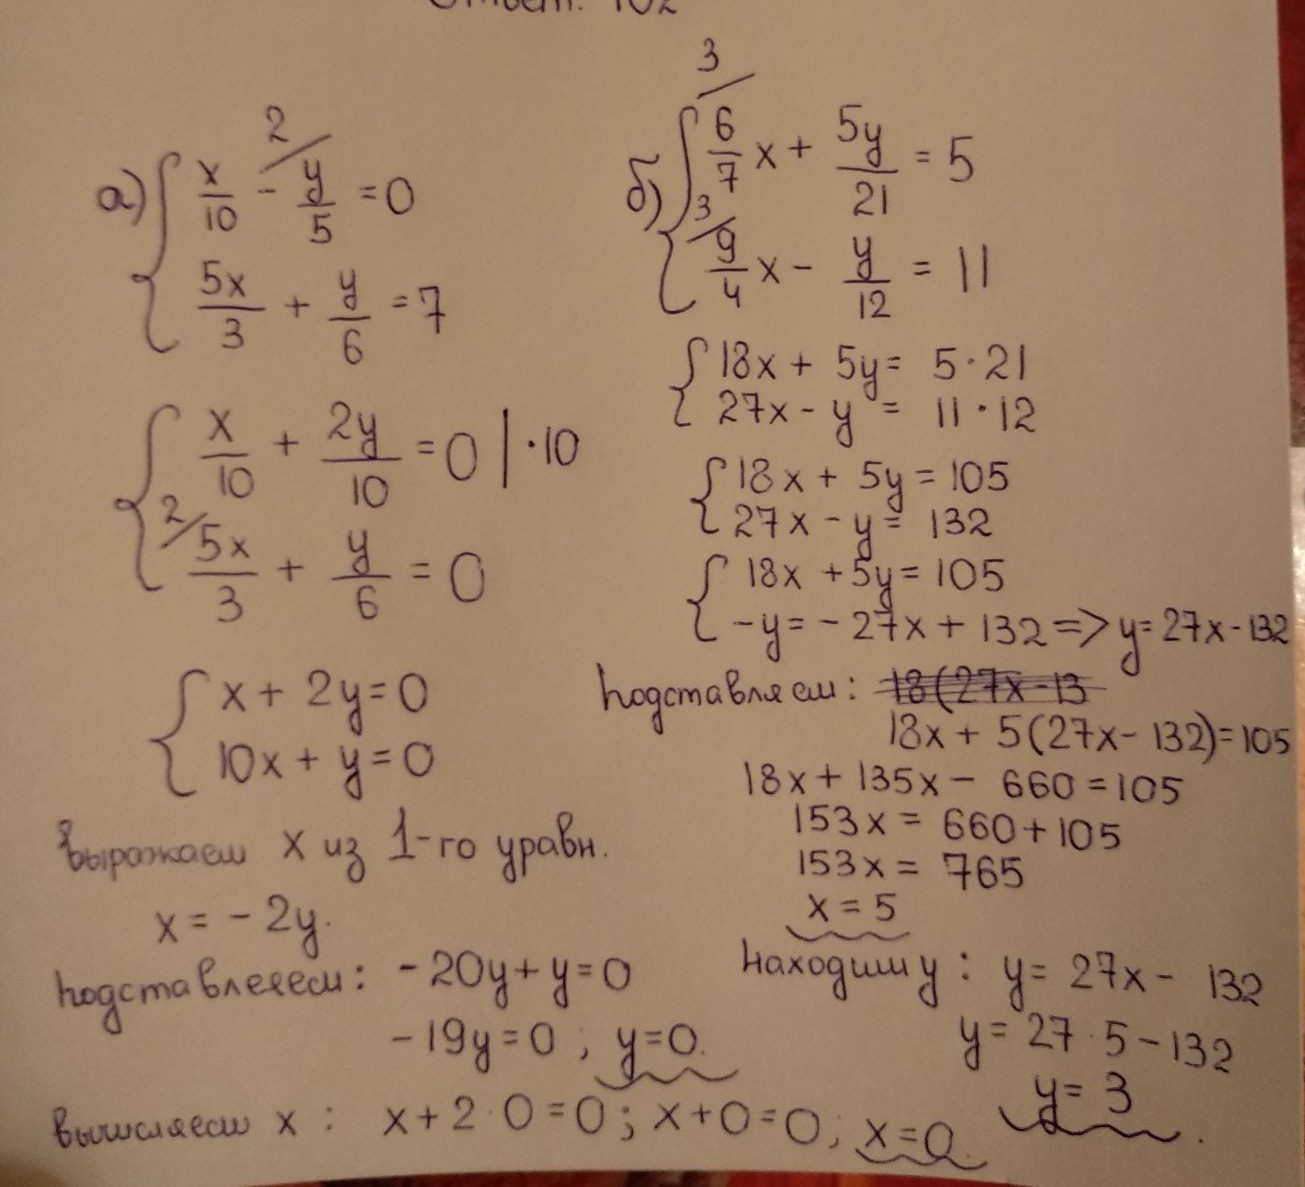 Ответ: 102
а) { x/10 - 2/ y/5 = 0
5x/3 + y/6 = 7
{ x/10 + 2y/10 = 0 | · 10
2/ 5x/3 + y/6 = 0
{ x + 2y = 0
10x + y = 0
выражаем x из 1-го уравн.
x = - 2y.
подставляем: - 20y + y = 0
- 19y = 0 ; y = 0.
вычисляем x : x + 2 · 0 = 0 ; x + 0 = 0 ; x = 0.
б) { 3/ 6/7 x + 5y/21 = 5
3/ 9/4 x - y/12 = 11
{ 18x + 5y = 5 · 21
27x - y = 11 · 12
{ 18x + 5y = 105
27x - y = 132
{ 18x + 5y = 105
- y = - 27x + 132 => y = 27x - 132
подставляем: 18(27x - 13
18x + 5(27x - 132) = 105
18x + 135x - 660 = 105
153x = 660 + 105
153x = 765
x = 5
находим y : y = 27x - 132
y = 27 · 5 - 132
y = 3.